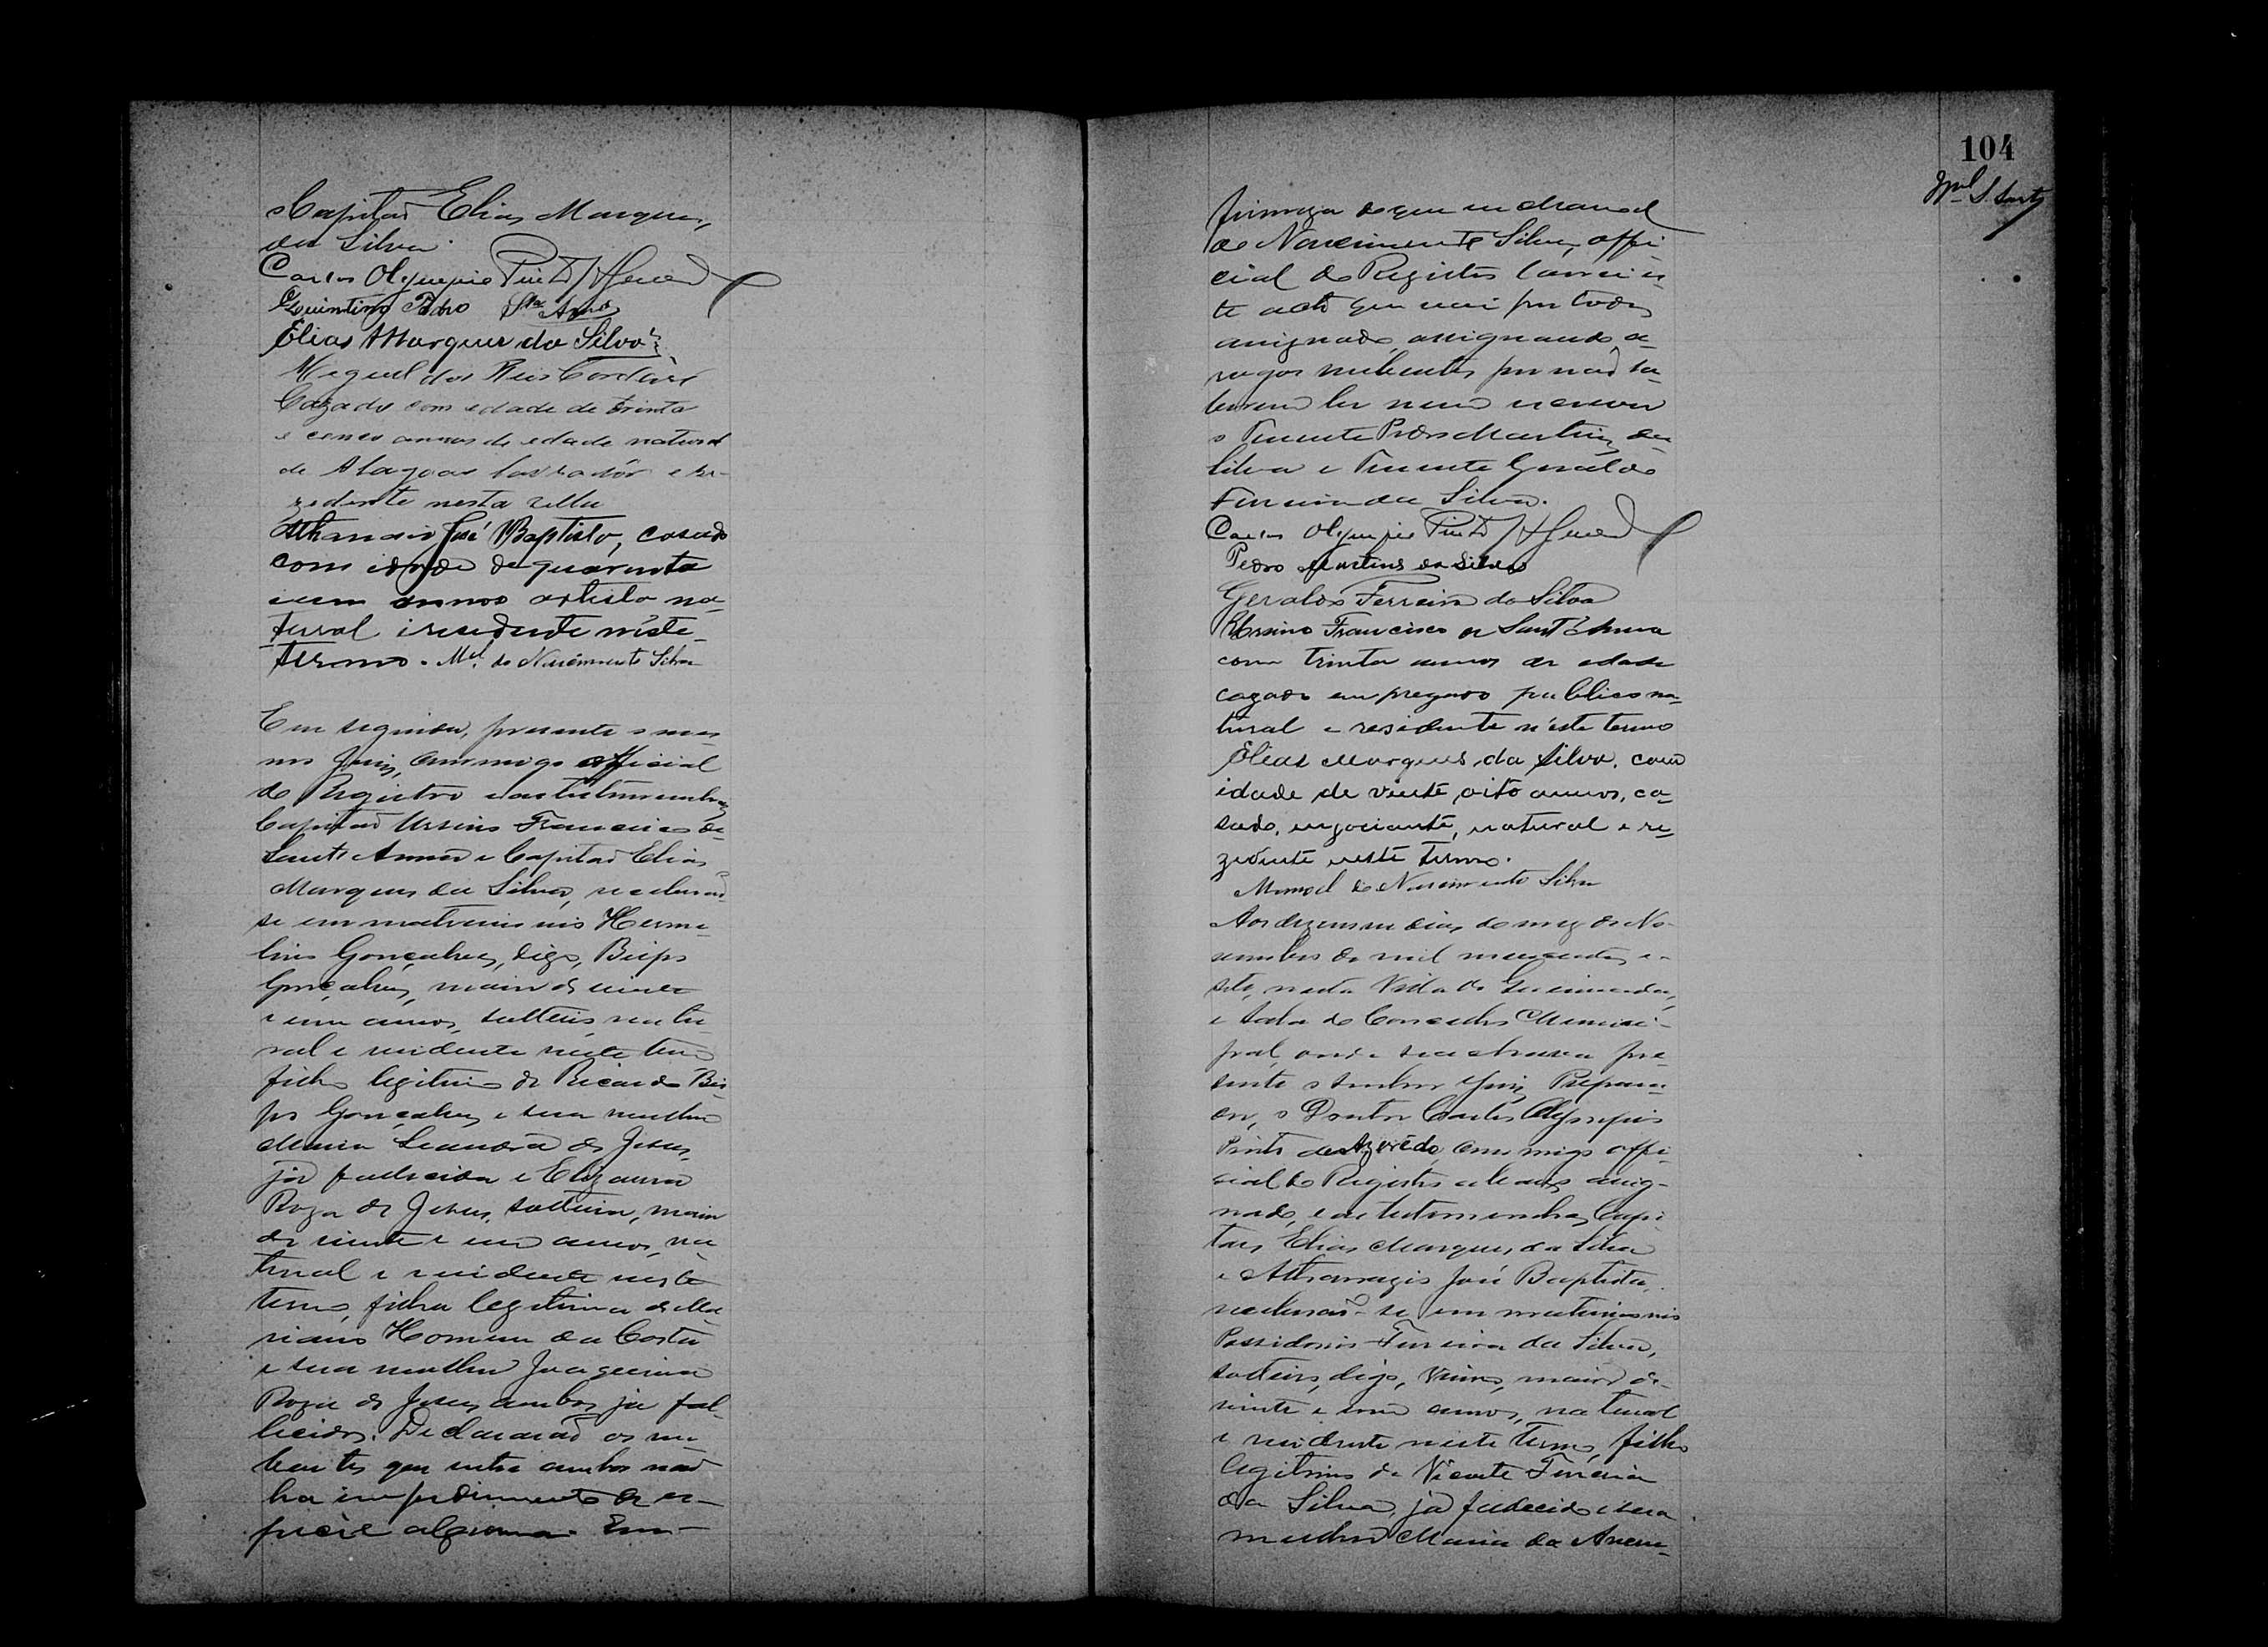 o Capitaõ Elias Marques,
da Silva.
Carlos Olympio Pinto d'Azevedo
Quintino Pedro Sta Anna
Elias Marques da Silva
Miguel dos Reis
Cazado com edade de trinta
e cenco annos de edade natural
de Alagoas lavradôr e re-
zedente nesta villa
Athanasio José Baptista, casado
com idade de quarenta
e um annos artista na-
tural i resedente néste
termo. Mel. do Nascimento Silva
Em seguida, presente o mes-
mo Juiz, commigo official
do Registro e as testemunhas
Capitaõ Ursino Francisco de
Sant'Anna e Capitaõ Elias
Marques da Silva, receberaõ-
se em matrimonio Herme-
lino Gonçalves, digo, Bispo
Gonçalves, maior de vinte
e um annos, solteiro, natu-
ral e residente neste termo
filho legitimo de Ricardo Bis-
po Gonçalves e sua mulher
Maria Leandra de Jesus,
já fallecida e Elizaura
Roza de Jesus, solteira, maior
de vinte e um annos, na-
tural e residente neste
termo, filha legitima de Ma-
riano Homem da Costa
e sua mulher Joaquina
Roza de Jesus, ambos já fal-
lecidos. Declararaõ os nu-
bentes que entre ambos naõ
ha impedimento de es-
pecie alguma. Em
firmeza do que eu Manoel
do Nascimento Silva, offi-
cial do Registro lavrei es-
te acto que vai por todos
assignado, assignando a
rogos nubentes por naõ sa-
berem ler nem escrever
o Tenente Pedro Martins da
Silva e Tenente Geraldo
Ferreira da Silva.
Carlos Olympio Pinto d'Azevedo
Pedro Martins da Silva
Geraldo Ferreira da Silva
Ursino Francisco de Sant'Anna
com trinta annos de edade
cazado empregado publico na-
tural e residente n'este termo
Elias Marques da Silva, com
idade de vinte oito annos, ca-
sado, negociante, natural e re-
zidente neste termo.
Manoel do Nascimento Silva
Aos dezenove dias do mez de No-
vembro de mil novecentos e
sete, nesta Villa de Queimadas,
e Sala do Conselho Munici-
pal, onde se achava pre-
sente o Senhor Juiz Prepara-
dor, o Doutor Carlos Olympio
Pinto de Azevêdo, commigo offi-
cial do Registro abaixo assig-
nado, e as testemunhas, Capi-
tães Elias Marques da Silva
e Athanazio José Baptista,
receberaõ-se em matrimonio
Possidonio Ferreira da Silva,
solteiro, digo, viuvo, maior de
vinte e um annos, natural
e residente neste termo, filho
legitimo de Vicente Ferreira
da Silva, já fallecido e sua
mulher Maria da Annun-
104